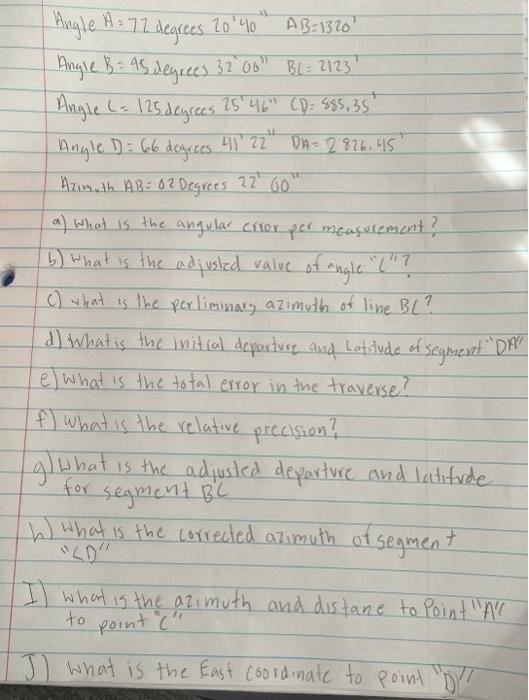 Angle A = 72 degrees 20' 40" AB=1320'
Angle B = 95 degrees 32' 00" BC = 2123'
Angle C = 125 degrees 25' 46" CD = 885.35'
Angle D = 66 degrees 41' 22" DA = 2826.45'
Azimuth AB = 02 Degrees 22' 00"
a) What is the angular error per measurement?
b) What is the adjusted value of angle "C"?
C) What is the perliminary azimuth of line BC?
d) What is the initial departure and Latitude of segment "DA"
e) What is the total error in the traverse?
f) What is the relative precision?
g) What is the adjusted departure and latitude
for segment BC
h) What is the corrected azimuth of segment
"CD"
I) What is the azimuth and distane to Point "A"
to point "C"
J) What is the East coordinate to point "D"